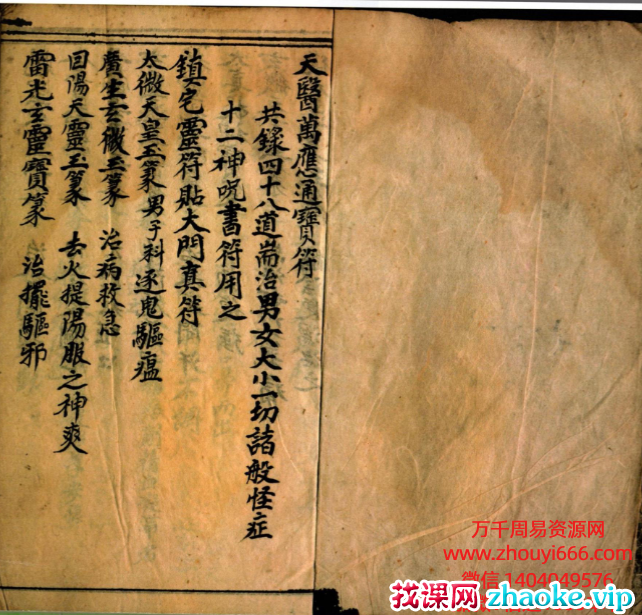 天醫萬應通寶符
共錄四十八道耑治男女大小一切諸般怪症
十二神咒書符用之
鎮宅靈符貼大門真符
太微天皇玉篆男子科逐鬼驅瘟
廣生玄微玉篆 治病救急
回陽天靈玉篆 去火提陽服之神爽
雷光玄靈寶篆 治擺驅邪
万千周易资源网
www.zhouyi666.com
微信 1404049576
找课网 zhaoke.vip